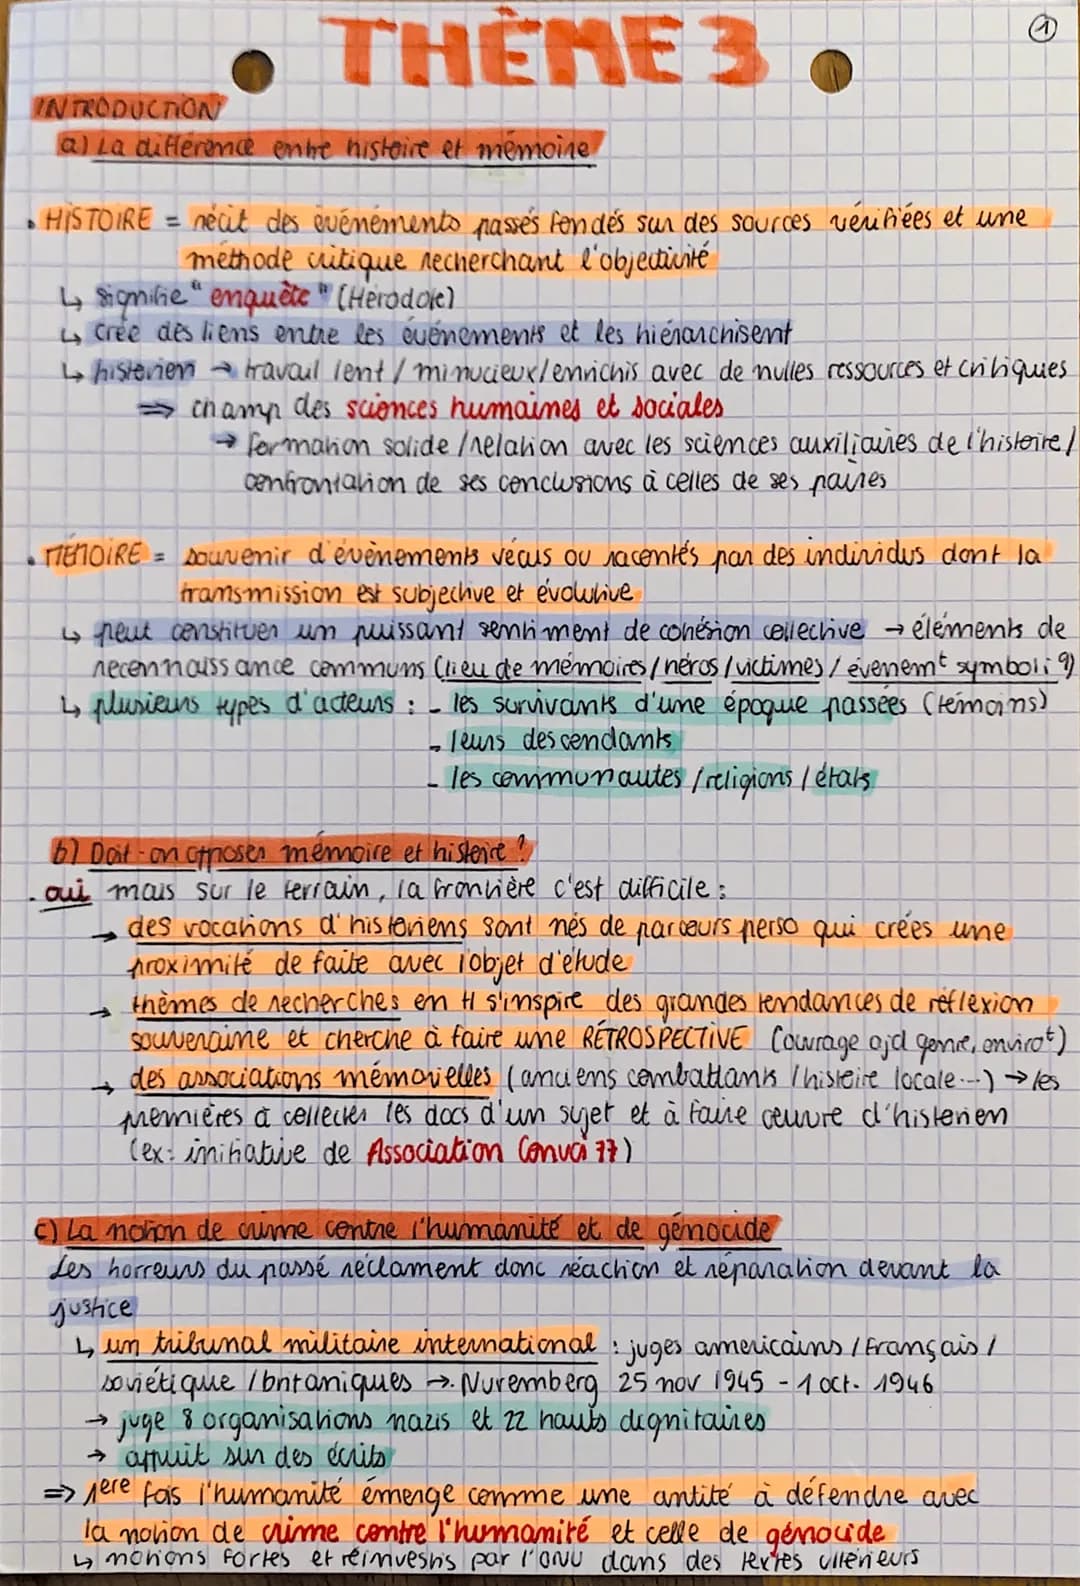 THÈME 3
1
INTRODUCTION
a) La différence entre histoire et mémoire
• HISTOIRE = récit des évènements passés fondés sur des sources vérifiées et une
méthode critique recherchant l'objectivité
↳ signifie "enquête" (Hérodote)
↳ crée des liens entre les évènements et les hiérarchisent
↳ historien → travail lent / minucieux / enrichis avec de nulles ressources et critiques
⇒ champ des sciences humaines et sociales
→ formation solide / relation avec les sciences auxiliaires de l'histoire /
confrontation de ses conclusions à celles de ses paires
• MÉMOIRE = souvenir d'évènements vécus ou racontés par des individus dont la
transmission est subjective et évolutive
↳ peut constituer un puissant sentiment de cohésion collective → éléments de
reconnaissance communs (lieu de mémoires / héros / victimes / évenemt symboliq)
↳ plusieurs types d'acteurs : - les survivants d'une époque passées (témoins)
- leurs descendants
- les communautes / religions / états
b) Doit-on opposer mémoire et histoire ?
. oui mais sur le terrain, la frontière c'est difficile :
→ des vocations d'historiens sont nés de parcours perso qui crées une
proximité de faite avec l'objet d'étude
→ thèmes de recherches en H s'inspire des grandes tendances de réflexion
souveraine et cherche à faire une RÉTROSPECTIVE (ouvrage ajd genre, envirot)
→ des associations mémorielles (anciens combattants / histoire locale...) → les
premières à collecter les docs d'un sujet et à faire œuvre d'historien
(ex: initiative de Association Convoi 77)
c) La notion de crime contre l'humanité et de génocide
Les horreurs du passé réclament donc réaction et réparation devant la
justice
↳ un tribunal militaire international : juges americains / Français /
soviétique / britaniques → Nuremberg 25 nov 1945 - 1 oct. 1946
→ juge 8 organisations nazis et 22 hauts dignitaires
→ appuit sur des écrits
⇒ 1ere fois l'humanité émerge comme une antité à défendre avec
la notion de crime contre l'humanité et celle de génocide
↳ notions fortes et réinvestis par l'ONU dans des textes ultérieurs